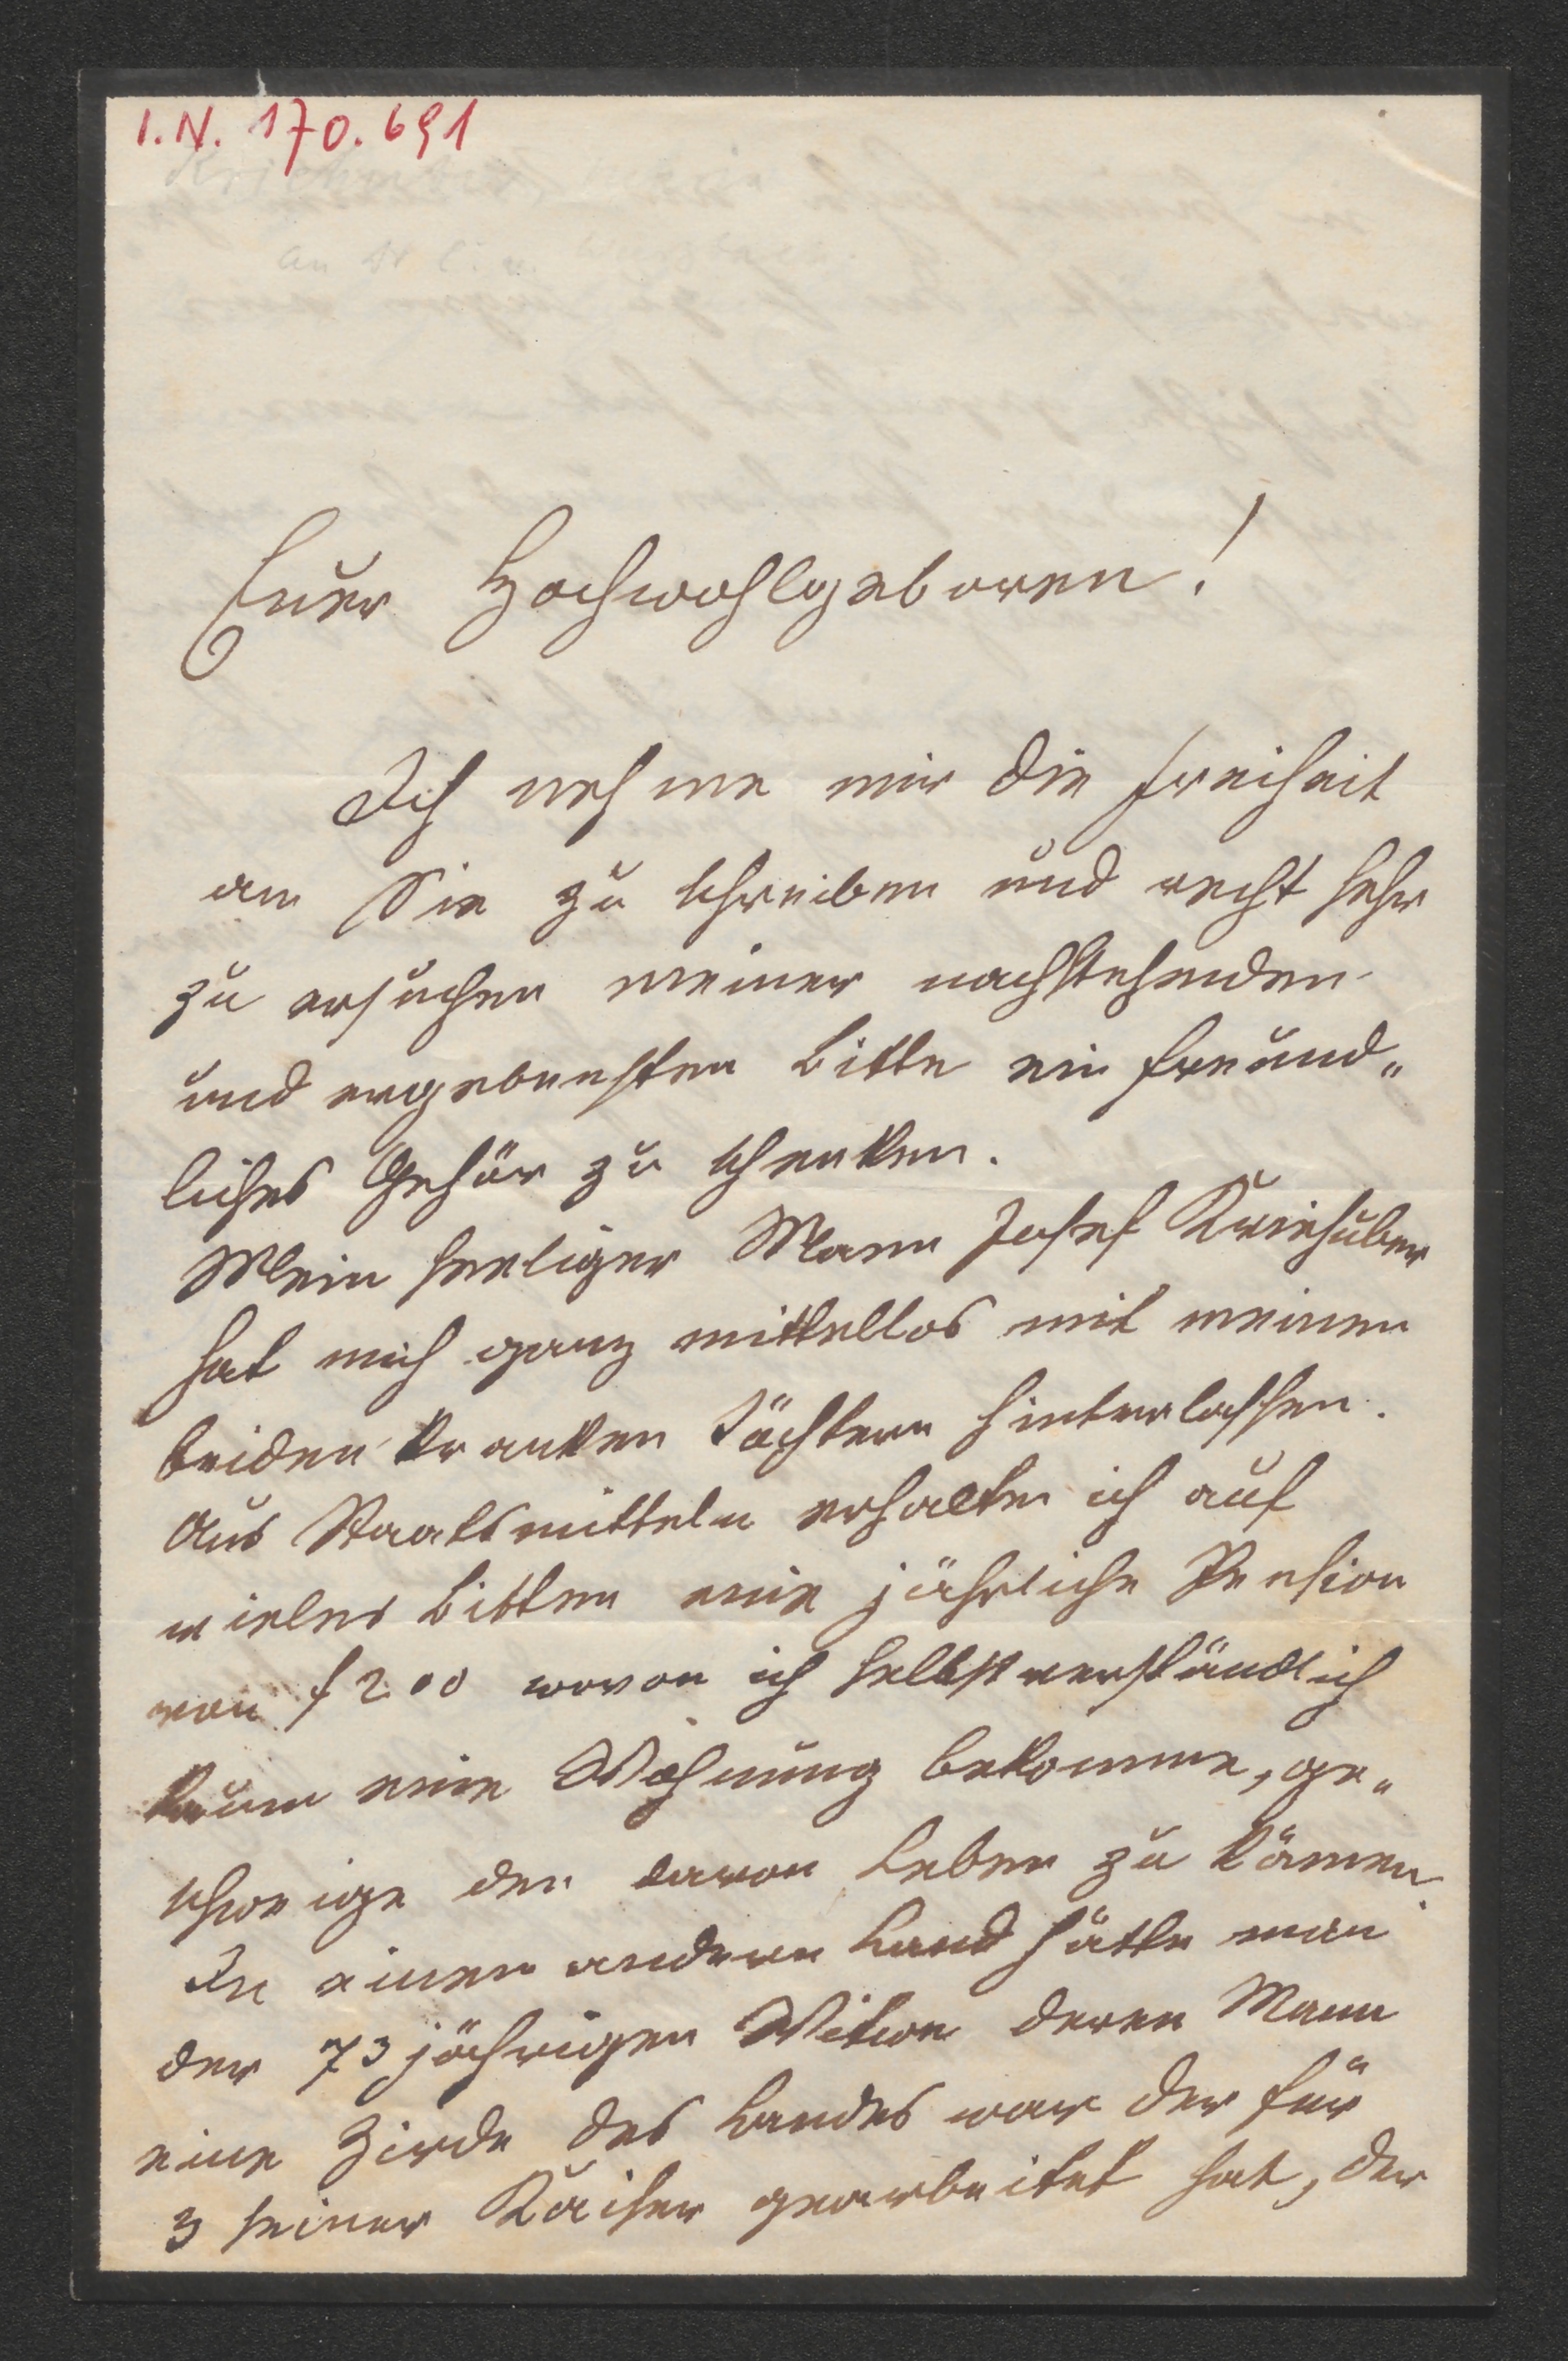 I.N. 170.691
Kriehuber
an Dr C. v.
Euer Hochwohlgeboren!
Ich nehme mir die Freiheit
an Sie zu schreiben und recht sehr
zu ersuchen meiner nachstehenden
und ergebensten Bitte ein freund„
liches Gehör zu schenken.
Mein seeliger Mann Josef Kriehuber
hat mich ganz mittellos mit meinen
beiden kranken Töchtern hinterlassen.
Aus Staatsmitteln erhalte ich auf
vieles Bitten eine jährliche Pension
von f 200 wovon ich selbstverständlich
kaum eine Wohnung bekomme, ge„
schweige den davon Leben zu können.
In einen andern Land hätte man
der 73 jährigen Witwe deren Mann
eine Zirde des Landes war der für
3 seiner Kaiser gearbeitet hat, der